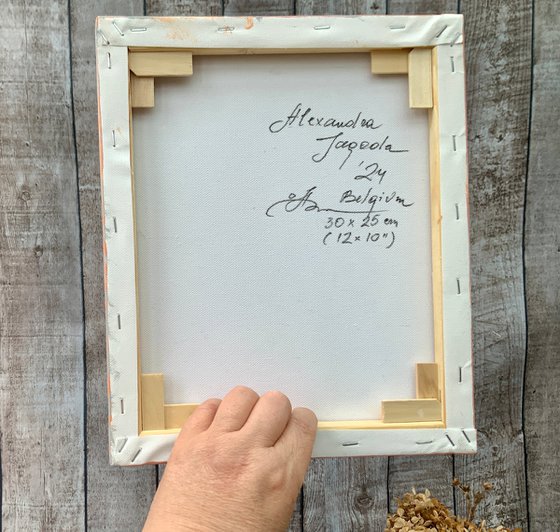 Alexandra
Jagoda
'24
Belgium
30 x 25 cm
(12 x 10")